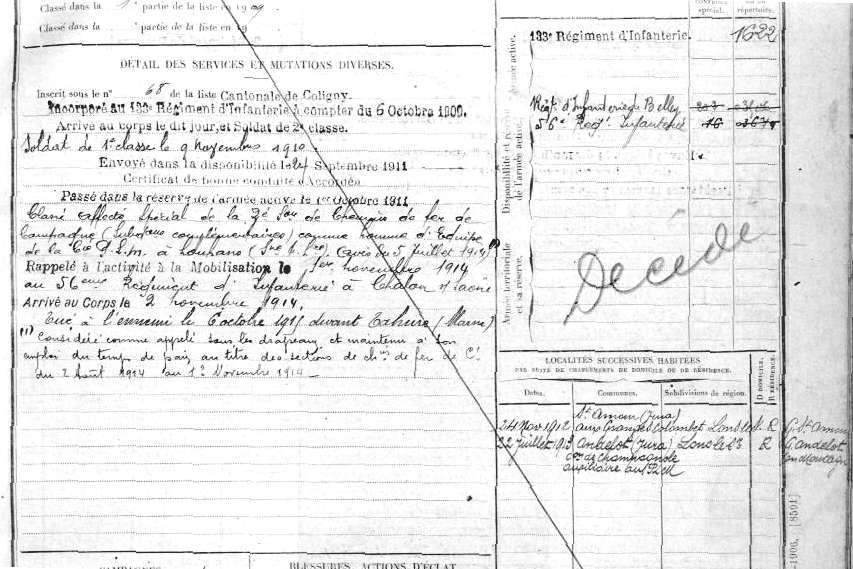 Classé dans la 1e partie de la liste en 1909
Classé dans la partie de la liste en 19
DÉTAIL DES SERVICES ET MUTATIONS DIVERSES.
Inscrit sous le n° 68 de la liste Cantonale de Coligny.
Incorporé au 133e Régiment d'Infanterie à compter du 6 Octobre 1909.
Arrivé au corps le dit jour, et Soldat de 2e classe.
Soldat de 1e classe le 9 novembre 1910.
Envoyé dans la disponibilité le 24 Septembre 1911
Certificat de bonne conduite Accordé.
Passé dans la réserve de l'armée active le 1er Octobre 1911
Classé affecté spécial de la 3e Son de Chemins de fer de
Campagne (Subdons complémentaires) comme homme d'Equipe
de la Cie P.L.M. à Louhans 5 Juillet 1914 (1)
Rappelé à l'activité à la Mobilisation le 1er novembre 1914
au 56ème Régiment d'Infanterie à Chalon s/ Saône
Arrivé au Corps le 2 novembre 1914.
Tué à l'ennemi le 6 octobre 1915 devant Tahure (Marne)
(1) Considéré comme appelé sous les drapeaux et maintenu à son
emploi du temps de paix au titre des sections de chins de fer de Cne
du 2 Août 1914 au 1er Novembre 1914
133e Régiment d'Infanterie.
1622
Régt d'Infanterie de Belley
56e Regt Infanterie 16
Armée active.
Disponibilité et réserve
de l'armée active.
Armée territoriale
et sa réserve.
Décédé
LOCALITÉS SUCCESSIVES HABITÉES
PAR SUITE DE CHANGEMENTS DE DOMICILE OU DE RÉSIDENCE.
Dates.
Communes.
Subdivisions de région.
D DOMICILE.
R RÉSIDENCE.
St Amour (Jura)
24 Nov 1912 aux Granges Colombet Lons le S. R G. St Amour
22 Juillet 1913 Andelot (Jura) Lons le S R G. Andelot
con de Champagnole en Montagne
auxiliaire au PLM
BLESSURES, ACTIONS D'ÉCLAT
CAMPAGNES
-1906. [8591]